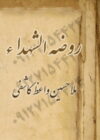 روضة الشهداء
ملا حسین واعظ کاشفی